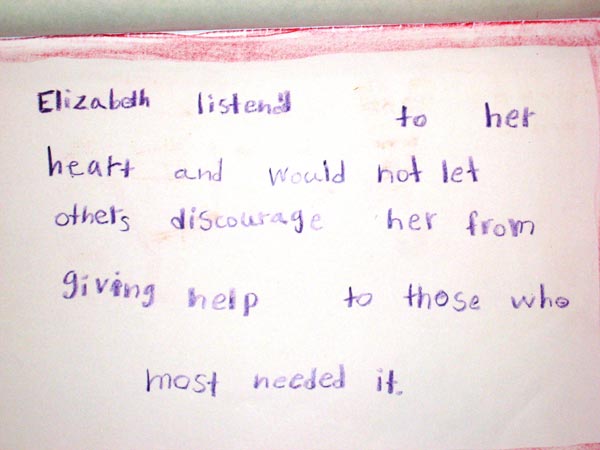 Elizabeth listend to her
heart and would not let
others discourage her from
giving help to those who
most needed it.